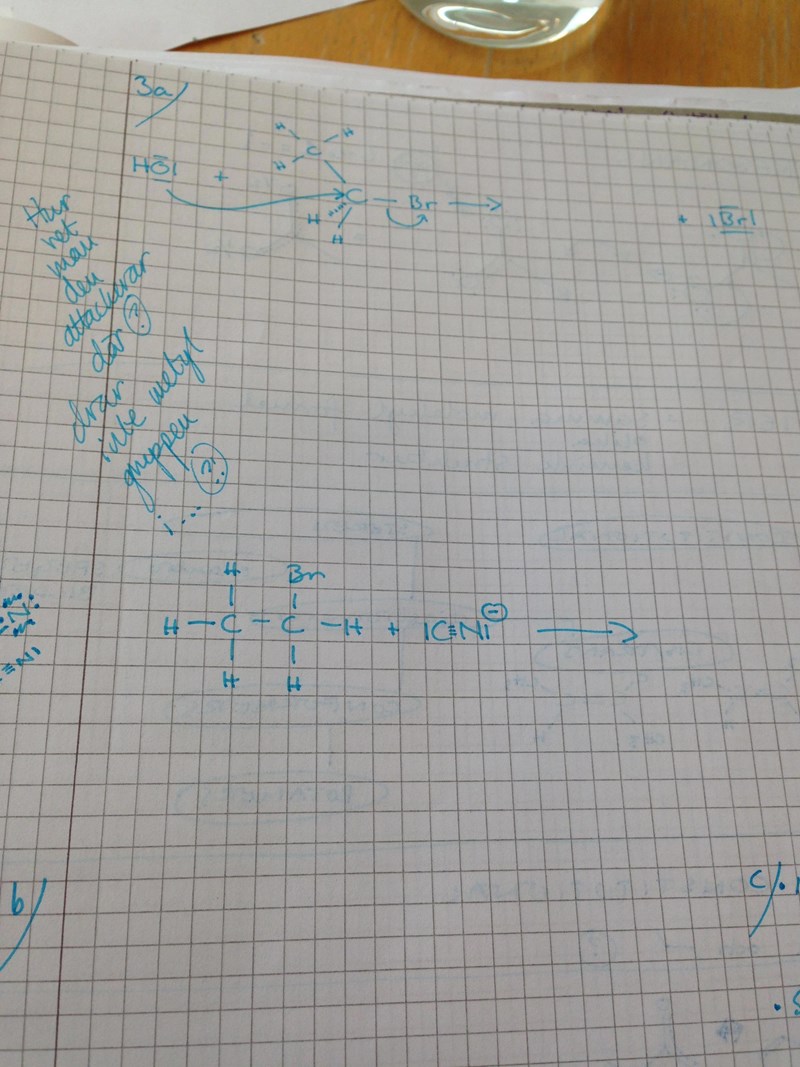 3a)
H
H
C
H
HŌ| +
C — Br →
H
H
+ |B̄r|
Hur
vet
man
den
attackerar
där?
drar
inte metyl
gruppen
?
H Br
| |
H — C — C — H + |C≡N|⊖ →
| |
H H
≡N|
b)
c)